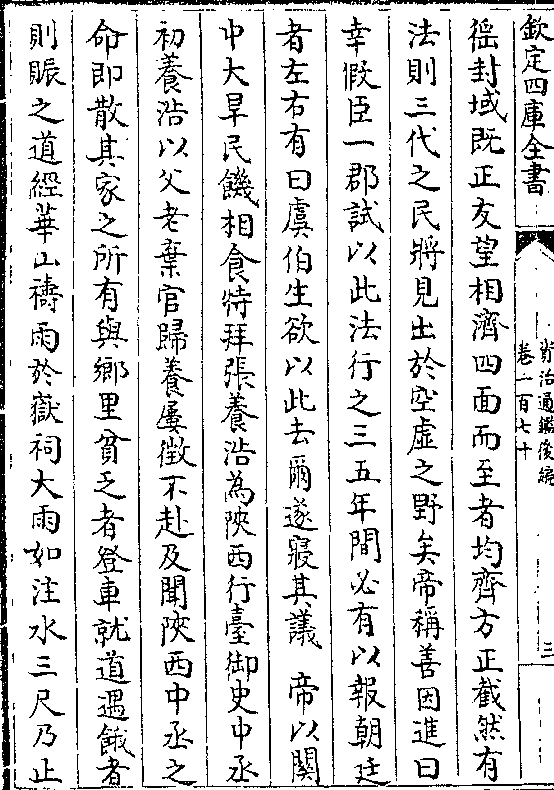 欽定四庫全書
資治通鑑後編
卷一百七十
三
徭封域既正友望相濟四面而至者均齊方正截然有
法則三代之民將見出於空虛之野矣帝稱善因進曰
幸假臣一郡試以此法行之三五年間必有以報朝廷
者左右有曰虞伯生欲以此去爾遂寢其議　帝以關
中大旱民饑相食特拜張養浩為陜西行臺御史中丞
初養浩以父老棄官歸養屢徵不赴及聞陜西中丞之
命即散其家之所有與鄉里貧乏者登車就道遇餓者
則賑之道經華山禱雨於嶽祠大雨如注水三尺乃止